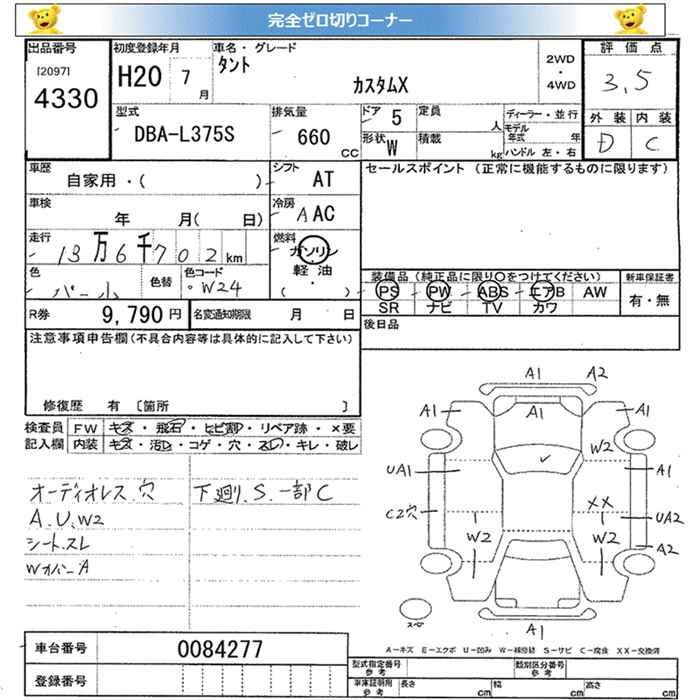 完全ゼロ切りコーナー
出品番号
[2097]
4330
初度登録年月
H20 7
月
車名・グレード
タント
カスタムX
2WD
・
4WD
評価点
3,5
外装 内装
D C
型式
DBA-L375S
排気量
660
CC
ドア 5
定員
人
形状 W
積載
kg
ディーラー・並行
モデル年式 年
ハンドル 左・右
車歴
自家用・( )
シフト
AT
セールスポイント (正常に機能するものに限ります)
車検
年 月( 日)
冷房
A AC
走行
13万6千702km
燃料
ガソリン
・
軽油
( ・ )
色
パール
色替
色コード
W24
装備品 (純正品に限り○をつけてください)
PS PW ABS エアB AW
SR ナビ TV カワ
新車保証書
有・無
R券
9,790円
名変通知期限
月 日
後日品
注意事項申告欄(不具合内容等は具体的に記入して下さい)
修復歴 有 〔箇所 〕
検査員記入欄
FW キズ・飛石・ヒビ割・リペア跡・×要
内装 キズ・汚レ・コゲ・穴・スレ・キレ・破レ
オーディオレス.穴
A.U.W2
シートスレ
WカバーA
下廻り.S.一部C
A1 A2
A1 A1 A1
W2
UA1 A1
C2穴 XX UA2
W2 W2 A2
A1
スペ
A-キズ E-エクボ U-凹み W-補修跡 S-サビ C-腐食 XX-交換済
車台番号
0084277
登録番号
型式指定番号
参考
類別区分番号
参考
車庫証明用
参考
長さ cm 幅 cm 高さ cm